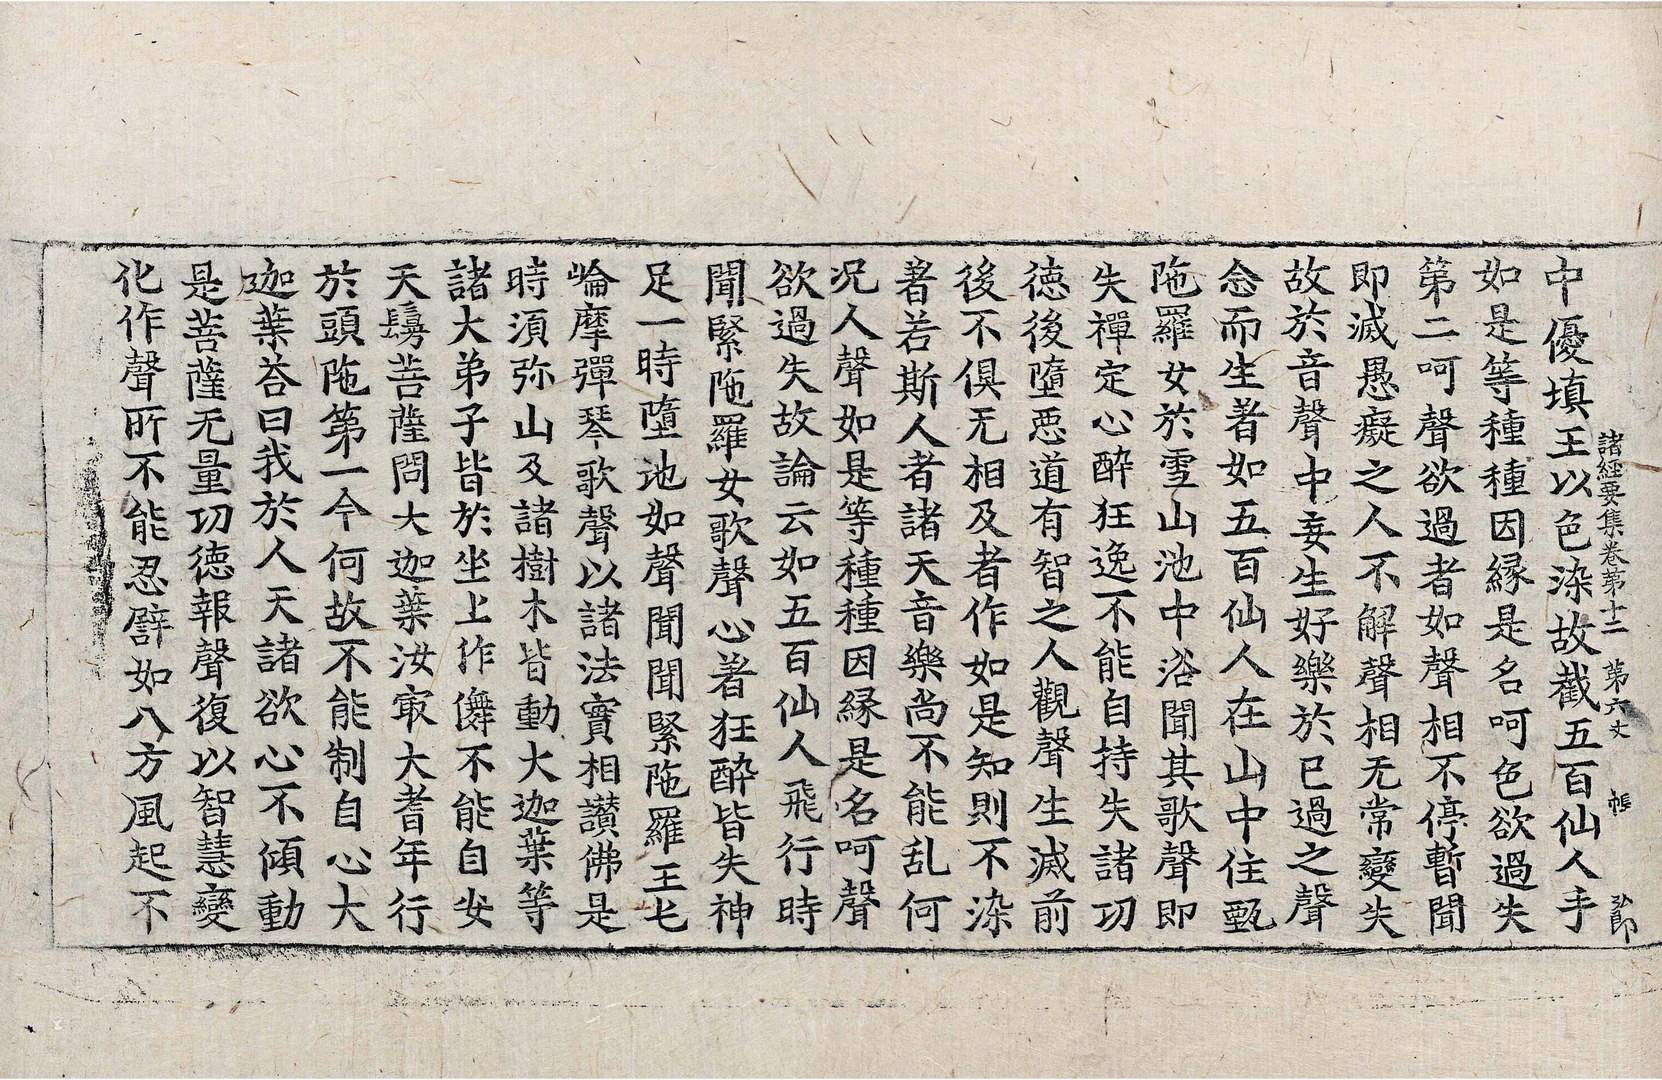 諸經要集卷第十二 第六丈 帳 邵
中優填王以色染故截五百仙人手
如是等種種因緣是名呵色欲過失
第二呵聲欲過者如聲相不停暫聞
即滅愚癡之人不解聲相无常變失
故於音聲中妄生好樂於已過之聲
念而生著如五百仙人在山中住甄
陁羅女於雪山池中浴聞其歌聲即
失禪定心醉狂逸不能自持失諸功
德後墮惡道有智之人觀聲生滅前
後不俱无相及者作如是知則不染
著若斯人者諸天音樂尚不能乱何
況人聲如是等種種因緣是名呵聲
欲過失故論云如五百仙人飛行時
聞緊陁羅女歌聲心著狂醉皆失神
足一時墮地如聲聞聞緊陁羅王屯
崘摩彈琴歌聲以諸法實相讚佛是
時須弥山及諸樹木皆動大迦葉等
諸大弟子皆於坐上作儛不能自安
天鬘菩薩問大迦葉汝㝡大耆年行
於頭陁第一今何故不能制自心大
迦葉荅曰我於人天諸欲心不傾動
是菩薩无量功德報聲復以智慧變
化作聲所不能忍譬如八方風起不